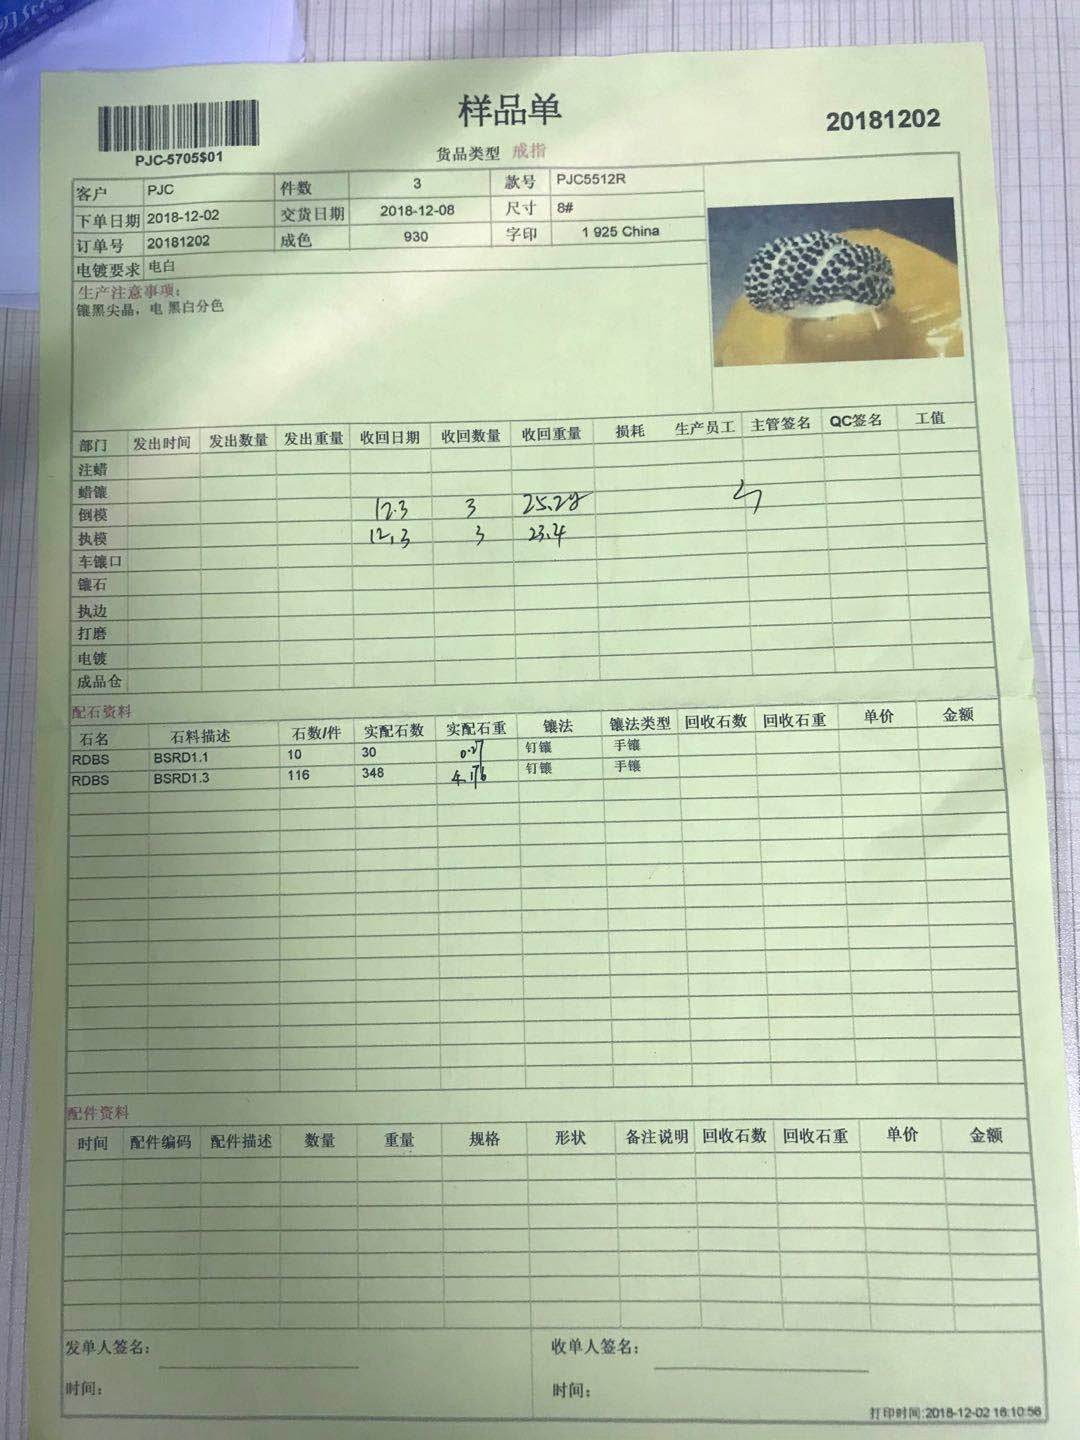 样品单
20181202
PJC-5705$01
货品类型 戒指
客户 PJC 件数 3 款号 PJC5512R
下单日期 2018-12-02 交货日期 2018-12-08 尺寸 8#
订单号 20181202 成色 930 字印 1 925 China
电镀要求 电白
生产注意事项:
镶黑尖晶，电 黑白分色
部门 发出时间 发出数量 发出重量 收回日期 收回数量 收回重量 损耗 生产员工 主管签名 QC签名 工值
注蜡
蜡镶
倒模 12.3 3 25.28
执模 12.3 3 23.4
车镶口
镶石
执边
打磨
电镀
成品仓
配石资料
石名 石料描述 石数/件 实配石数 实配石重 镶法 镶法类型 回收石数 回收石重 单价 金额
RDBS BSRD1.1 10 30 0.27 钉镶 手镶
RDBS BSRD1.3 116 348 4.176 钉镶 手镶
配件资料
时间 配件编码 配件描述 数量 重量 规格 形状 备注说明 回收石数 回收石重 单价 金额
发单人签名: 收单人签名:
时间: 时间:
打印时间:2018-12-02 16:10:56